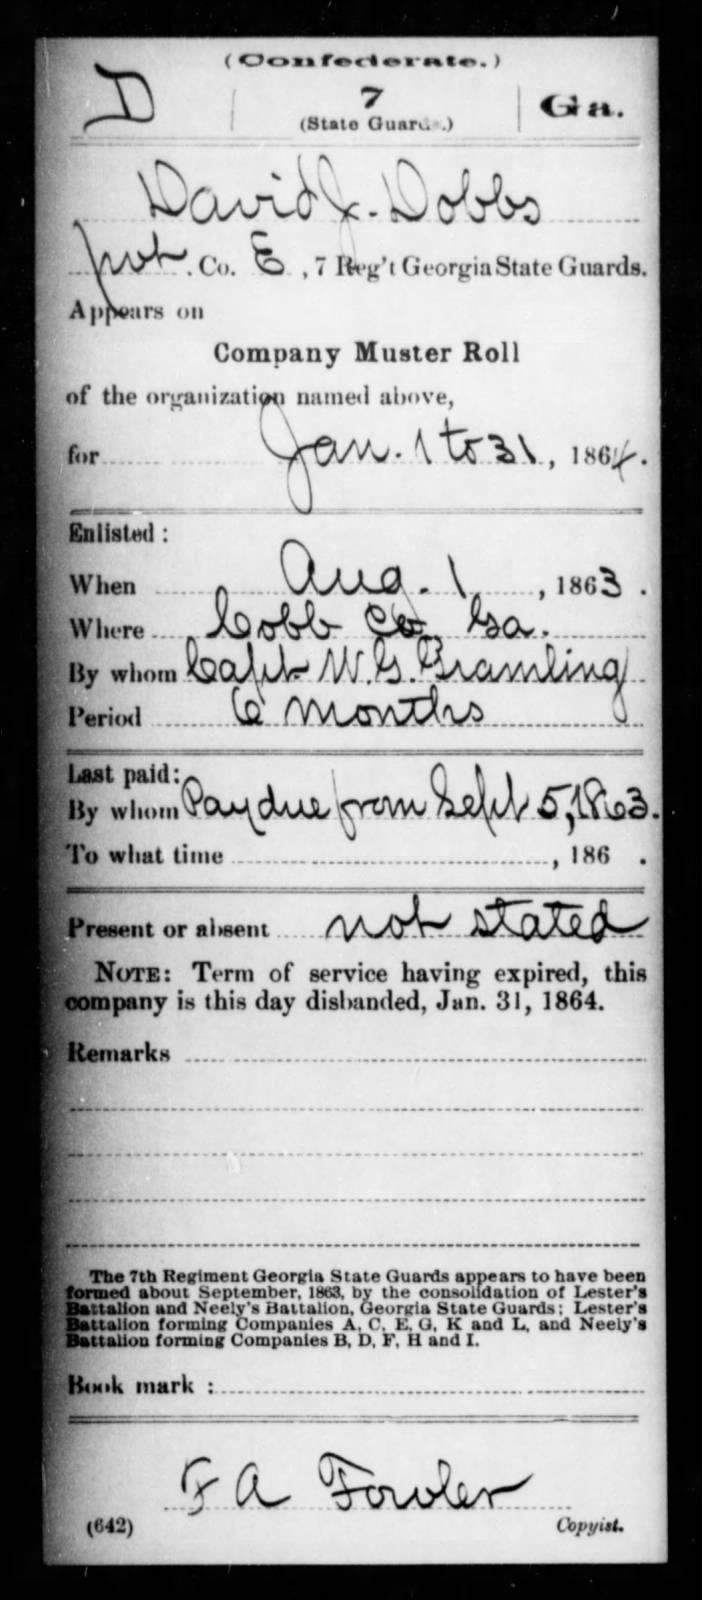 (Confederate.)
D | 7 | Ga.
(State Guards.)
David J. Dobbs
Pvt, Co. E, 7 Reg't Georgia State Guards.
Appears on
Company Muster Roll
of the organization named above,
for Jan. 1 to 31, 1864.
Enlisted:
When Aug. 1, 1863.
Where Cobb Co Ga.
By whom Capt W. G. Gramling
Period 6 months
Last paid:
By whom Pay due from Sept 5, 1863.
To what time , 186 .
Present or absent not stated
NOTE: Term of service having expired, this
company is this day disbanded, Jan. 31, 1864.
Remarks
The 7th Regiment Georgia State Guards appears to have been
formed about September, 1863, by the consolidation of Lester's
Battalion and Neely's Battalion, Georgia State Guards; Lester's
Battalion forming Companies A, C, E, G, K and L, and Neely's
Battalion forming Companies B, D, F, H and I.
Book mark :
F A Fowler
(642) Copyist.